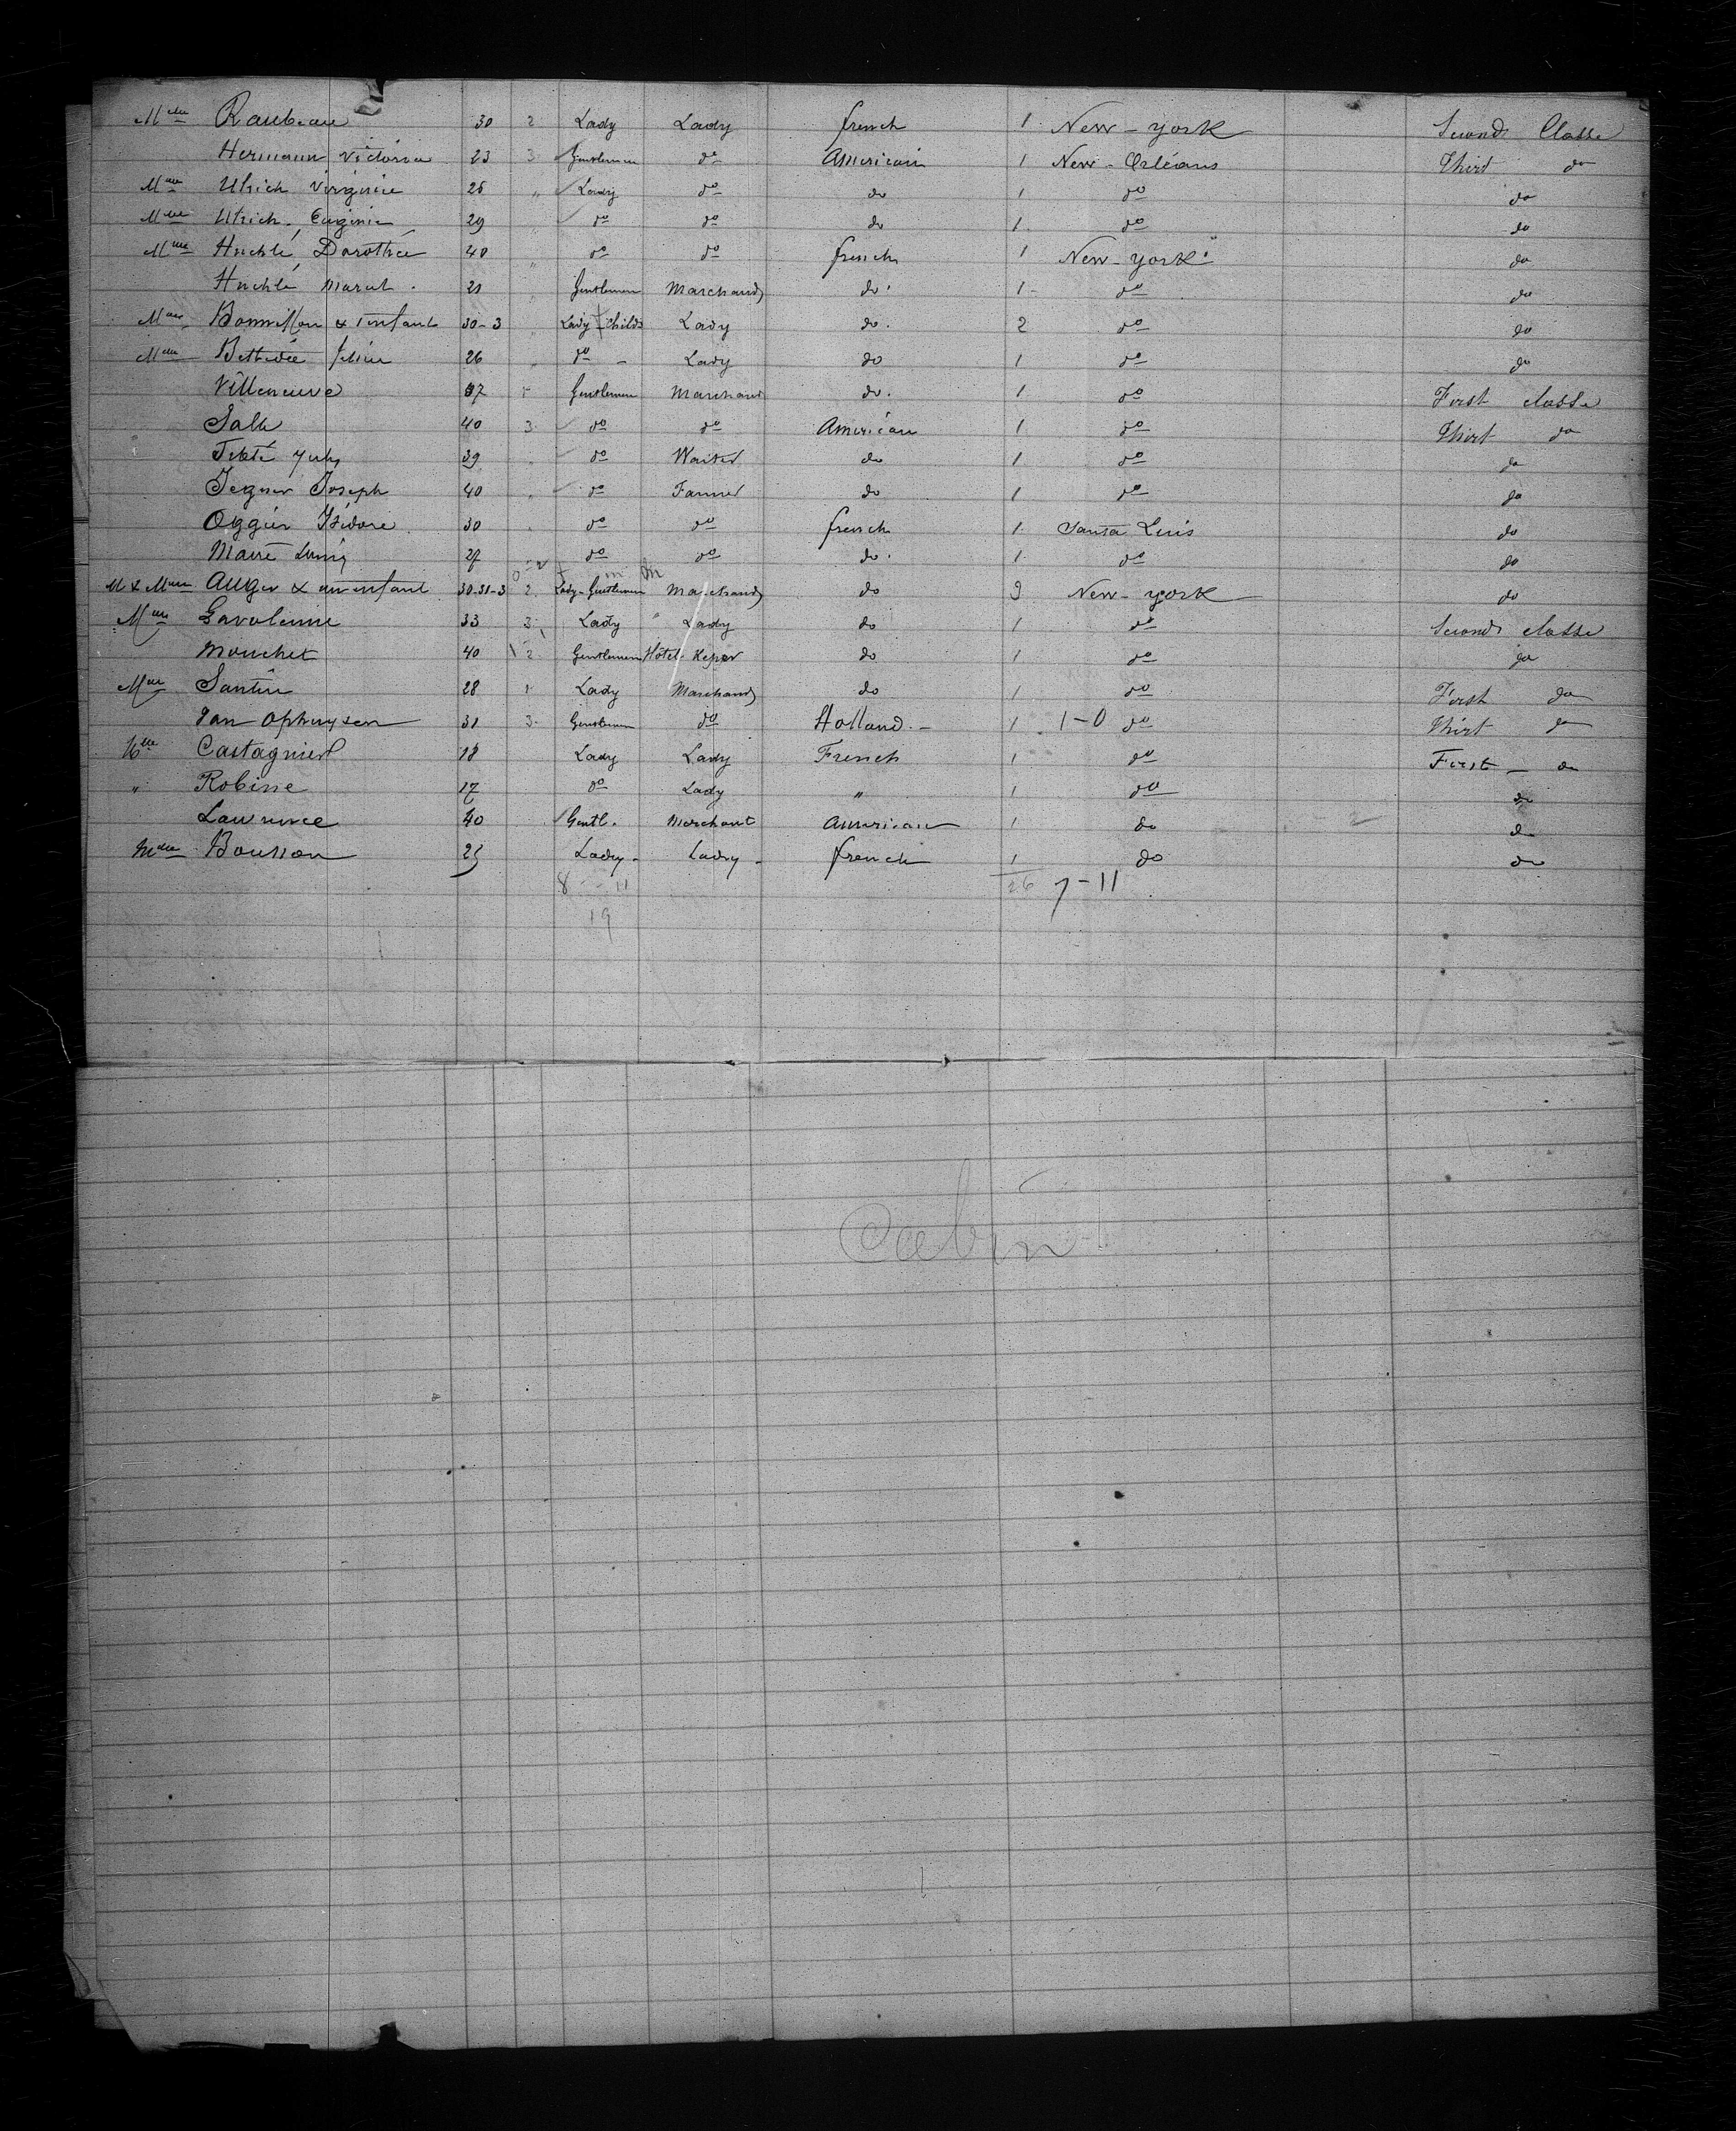 Mme Raubeau 30 2 Lady Lady french 1 New-york Second Classe
Hermann Victoria 23 3 Gentlemen do American 1 New-Orléans Thirt do
Mme Ulrich Virginie 25 " Lady do do 1 do do
Mme Ulrich, Eugénie 29 " do do do 1 do do
Mme Huchlé, Dorothée 40 " do do french 1 New-york do
Huchlé Marat. 21 " Gentlemen Marchand do. 1 do do
Mme & 1 enfant 30-3 " Lady Childs Lady do. 2 do do
Mme 26 " do - Lady do 1 do do
Villeneuve 37 1 Gentlemen Marchand do. 1 do First classe
Salle 40 3 do do American 1 do Thirt do
July 39 do Waiter do 1 do do
Joseph 40 do Farmer do 1 do do
Oggier Isidore 30 do do french 1 Santa Luis do
Marre 27 do do do. 1 do do
M & Mme Auger & un enfant 30-31-3 2 Lady-Gentlemen Marchand do 3 New-york do
Mme 33 3 Lady " Lady do 1 do Second classe
Mouchet 40 2 Gentlemen Hôtel-Keper do 1 do do
Mme Santin 28 1 Lady Marchand do 1 do First do
Van Ophuysen 31 3 Gentlemen do Holland- 1 1-0 do Thirt do
Mlle Castagniest 18 Lady Lady French 1 do First - do
" Robine 17 do Lady " 1 do do
Lawrence 40 Gentl. Merchant American 1 do do
Mme Bousson 25 Lady- Lady- french 1 do do
8 - 11 26 7-11
19
Cabin